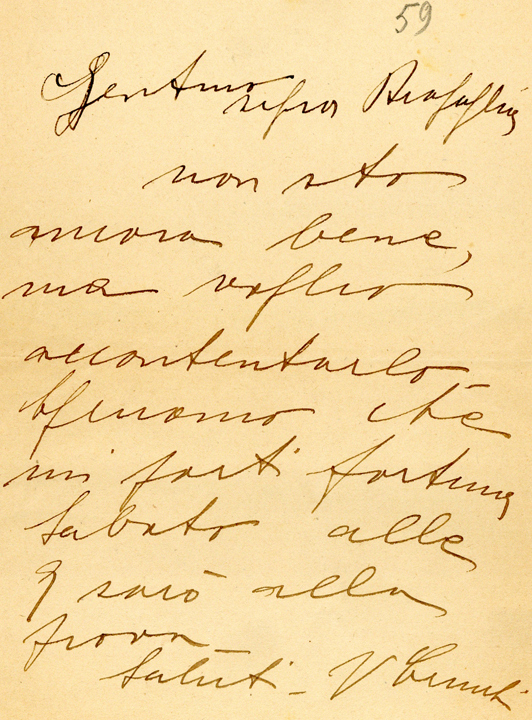 59
Gentmo signor Bragaglia
non sto
ancora bene,
ma voglio
accontentarlo
Speriamo che
mi porti fortuna
Sabato alle
9 sarò alla
prova
Saluti - V